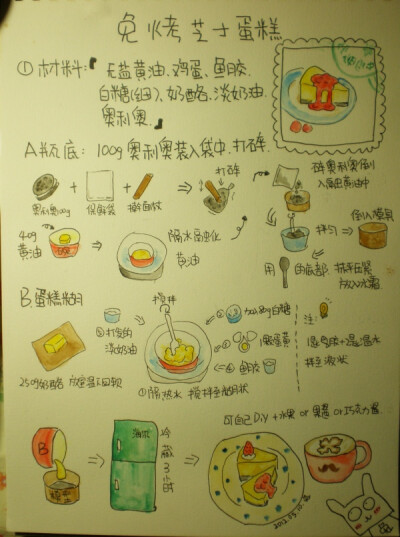 免烤芝士蛋糕
①材料:『无盐黄油、鸡蛋、鱼胶、
白糖(细)、奶酪、淡奶油、
奥利奥』
A.瓶底:100g奥利奥装入袋中,打碎.
打碎
碎奥利奥倒
入溶由黄油中
奥利奥100g
保鲜袋
擀面杖
40g
黄油
隔水溶化
黄油
拌匀
倒入模具
用
的底部
放入冰霜
B.蛋糕糊
搅拌
打发的
淡奶油
加入80g白糖
1颗蛋黄
鱼胶
注:
拌至液状
250g奶酪 放室温下回软
①隔热水 搅拌至糊状
B
海尔
冷藏3小时
可自己DIY+水果 or 果酱 or 巧克力酱.